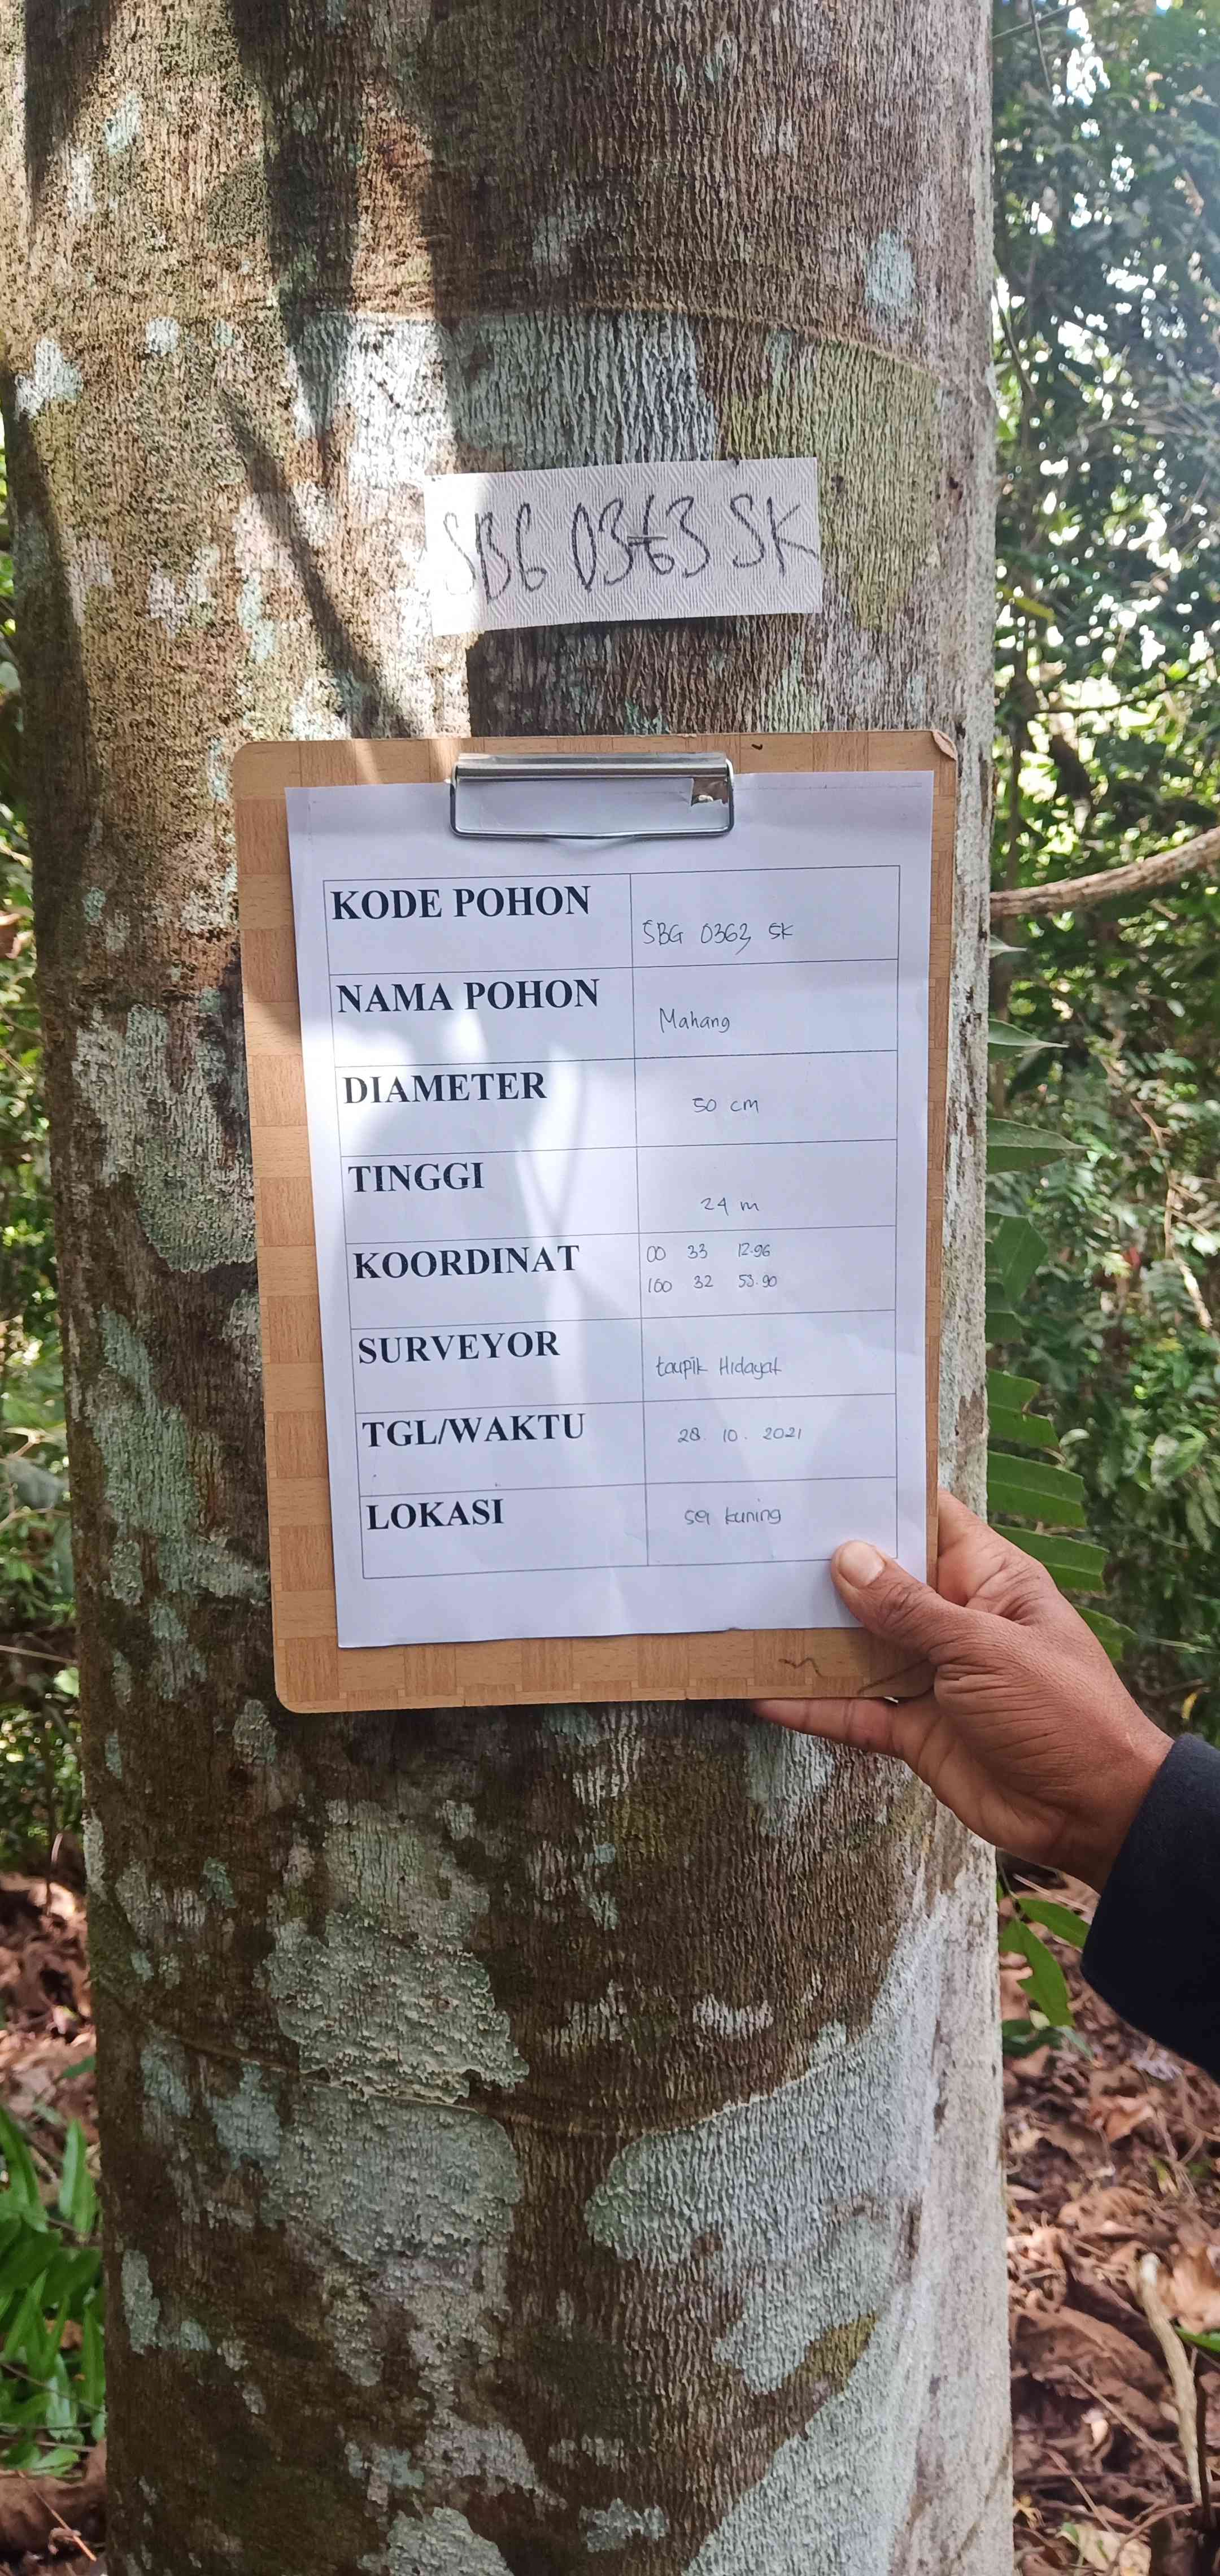 SBG 0363 SK
KODE POHON
SBG 0363 SK
NAMA POHON
Mahang
DIAMETER
50 cm
TINGGI
24 m
KOORDINAT
00 33 12.96
100 32 53.90
SURVEYOR
taupik Hidayat
TGL/WAKTU
28. 10. 2021
LOKASI
sei kuning